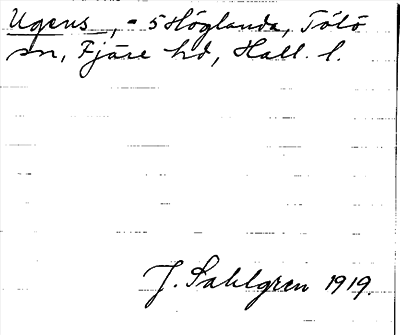 Ugens, - 5 Höglanda, Tölö
sn, Fjäre hd, Hall. l.
J. Sahlgren 1919.